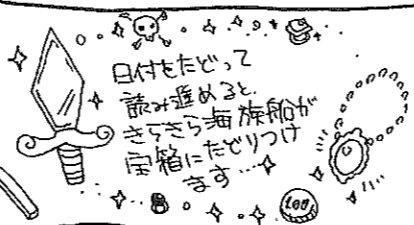 日付をたどって
読み進めると、
きらきら海族船が
宝箱にたどりつけ
ます…
100